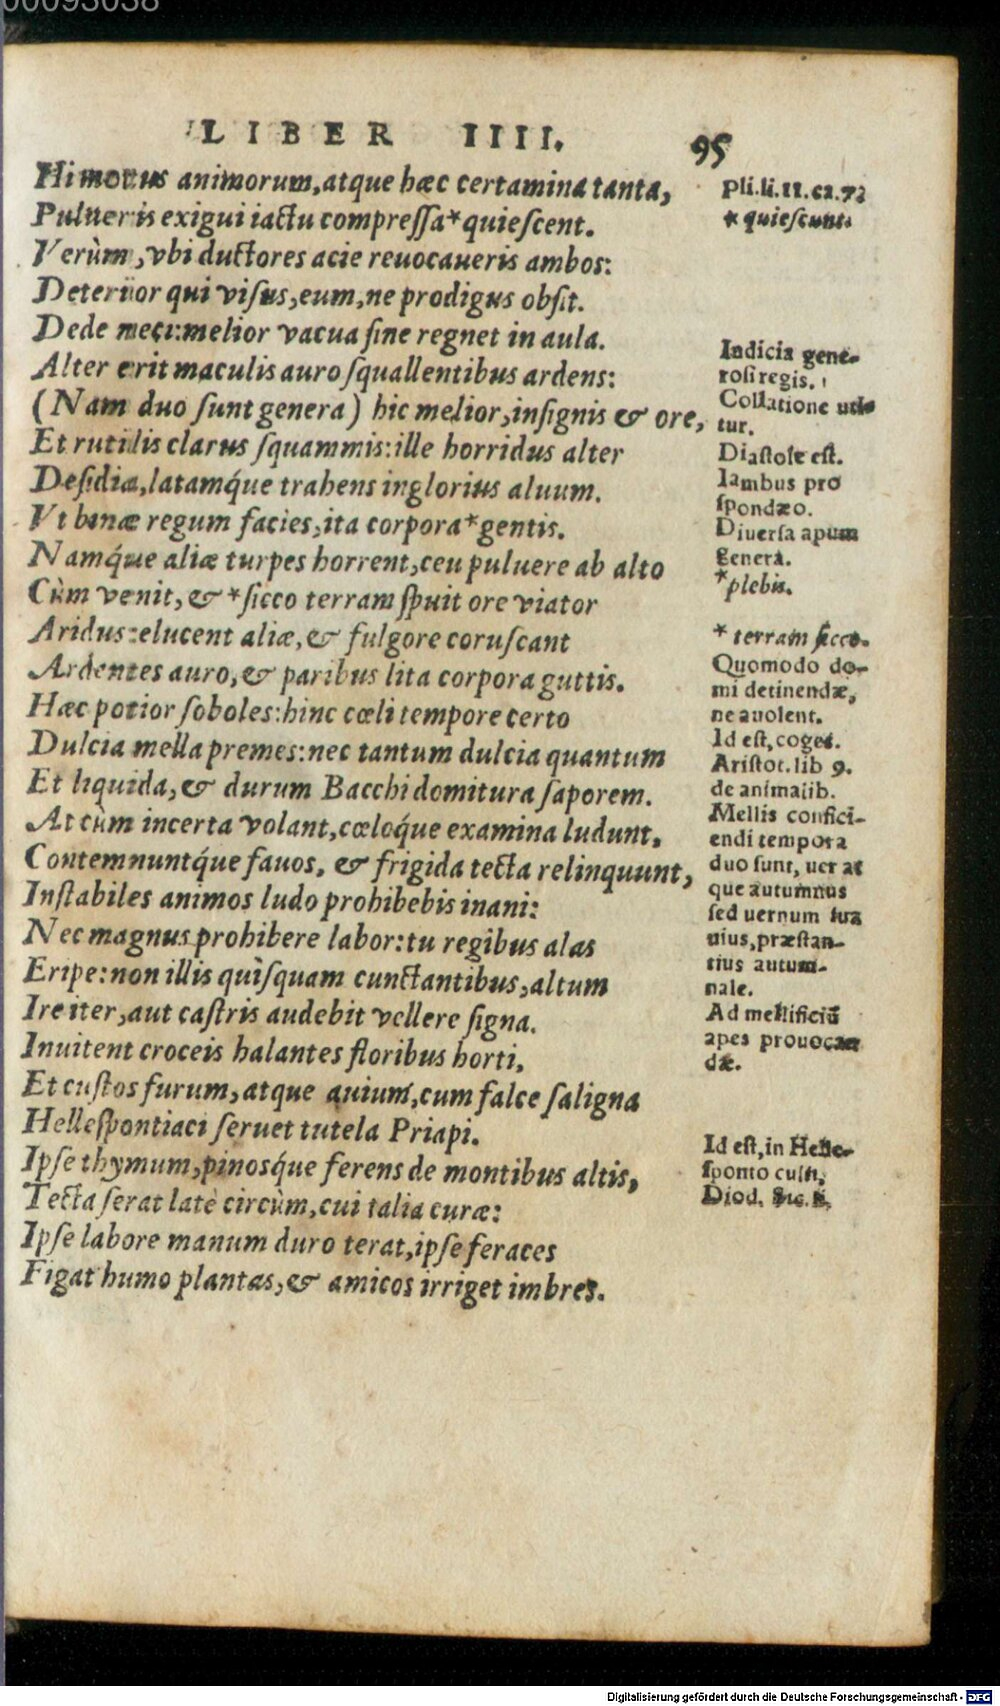 00093038
LIBER IIII.
95
Hi motus animorum, atque hæc certamina tanta,
Pulueris exigui iactu compreſſa*quieſcent.
Verùm, vbi ductores acie reuocaueris ambos:
Deterior qui viſus, eum, ne prodigus obſit.
Dede neci: melior vacua ſine regnet in aula.
Alter erit maculis auro ſquallentibus ardens:
(Nam duo ſunt genera) hic melior, inſignis & ore,
Et rutilis clarus ſquammis: ille horridus alter
Deſidia, latamq́ue trahens inglorius aluum.
Vt binæ regum facies, ita corpora*gentis.
Namq́ue aliæ turpes horrent, ceu puluere ab alto
Cùm venit, & *ſicco terram ſpuit ore viator
Aridus: elucent aliæ, & fulgore coruſcant
Ardentes auro, & paribus lita corpora guttis.
Hæc potior ſoboles: hinc cœli tempore certo
Dulcia mella premes: nec tantum dulcia quantum
Et liquida, & durum Bacchi domitura ſaporem.
At cùm incerta volant, cœloq́ue examina ludunt,
Contemnuntq́ue fauos, & frigida tecta relinquunt,
Inſtabiles animos ludo prohibebis inani:
Nec magnus prohibere labor: tu regibus alas
Eripe: non illis quiſquam cunctantibus, altum
Ire iter, aut caſtris audebit vellere ſigna.
Inuitent croceis halantes floribus horti,
Et cuſtos furum, atque auium, cum falce ſaligna
Helleſpontiaci ſeruet tutela Priapi.
Ipſe thymum, pinosq́ue ferens de montibus altis,
Tecta ſerat latè circùm, cui talia curæ:
Ipſe labore manum duro terat, ipſe feraces
Figat humo plantas, & amicos irriget imbres.
Pli. li. 11. ca. 7?
* quieſcunt.
Indicia gene-
roſi regis.
Collatione uti-
tur.
Diaſtole eſt.
Iambus pro
ſpondæo.
Diuerſa apum
genera.
*plebis.
* terram ſicco.
Quomodo do-
mi detinendæ,
ne auolent.
Id eſt, coges.
Ariſtot. lib 9.
de animalib.
Mellis confici-
endi tempora
duo ſunt, uer at
que autumnus
ſed uernum ſua
uius, præſtan-
tius autum-
nale.
Ad mellificiū
apes prouocan
dæ.
Id eſt, in Helle-
ſponto culti,
Diod. Sic.
Digitalisierung gefördert durch die Deutsche Forschungsgemeinschaft - DFG